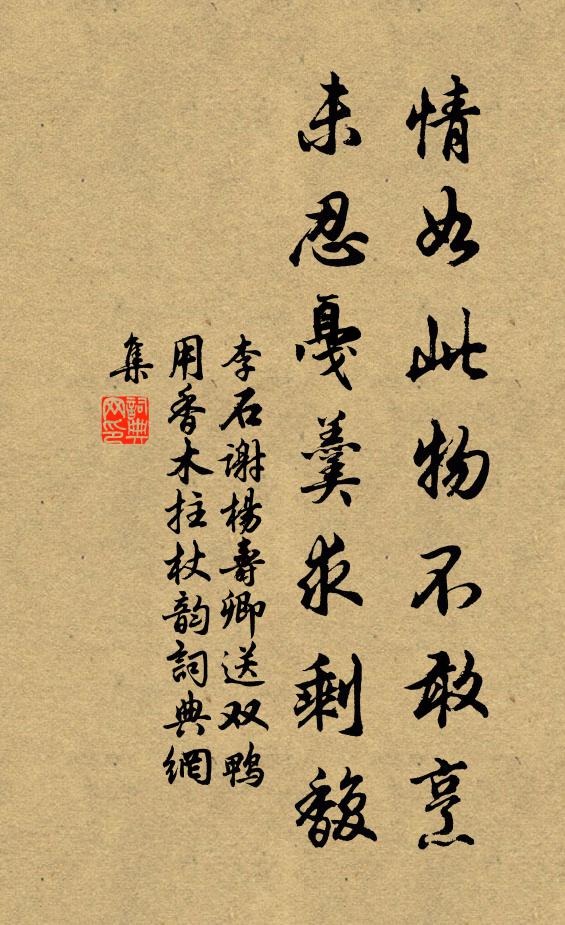 情如此物不敢烹
未忍戛羹求剩馥
李石谢杨寿卿送双鸭
用香木拄杖韵詞典網
集
詞典
网印